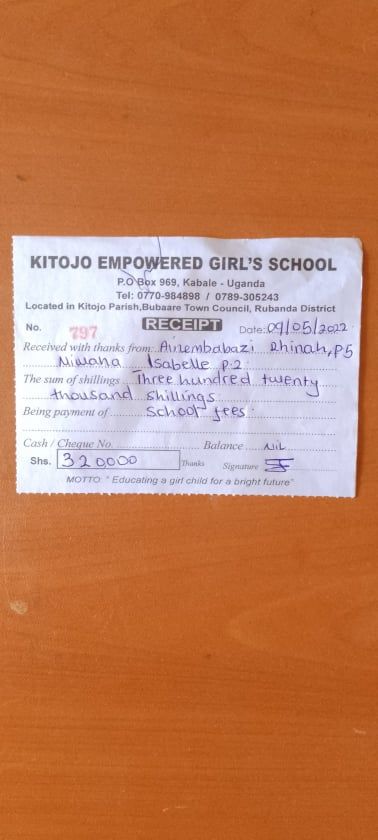 KITOJO EMPOWERED GIRL'S SCHOOL
P.O Box 969, Kabale - Uganda
Tel: 0770-984898 / 0789-305243
Located in Kitojo Parish,Bubaare Town Council, Rubanda District
No. 797 RECEIPT Date: 09/05/2022
Received with thanks from: Ainembabazi Shinah, P5
Niwana Isabelle P.2
The sum of shillings Three hundred twenty
thousand shillings
Being payment of School fees.
Cash / Cheque No. Balance NIL
Shs. 320000 Thanks Signature
MOTTO: " Educating a girl child for a bright future"